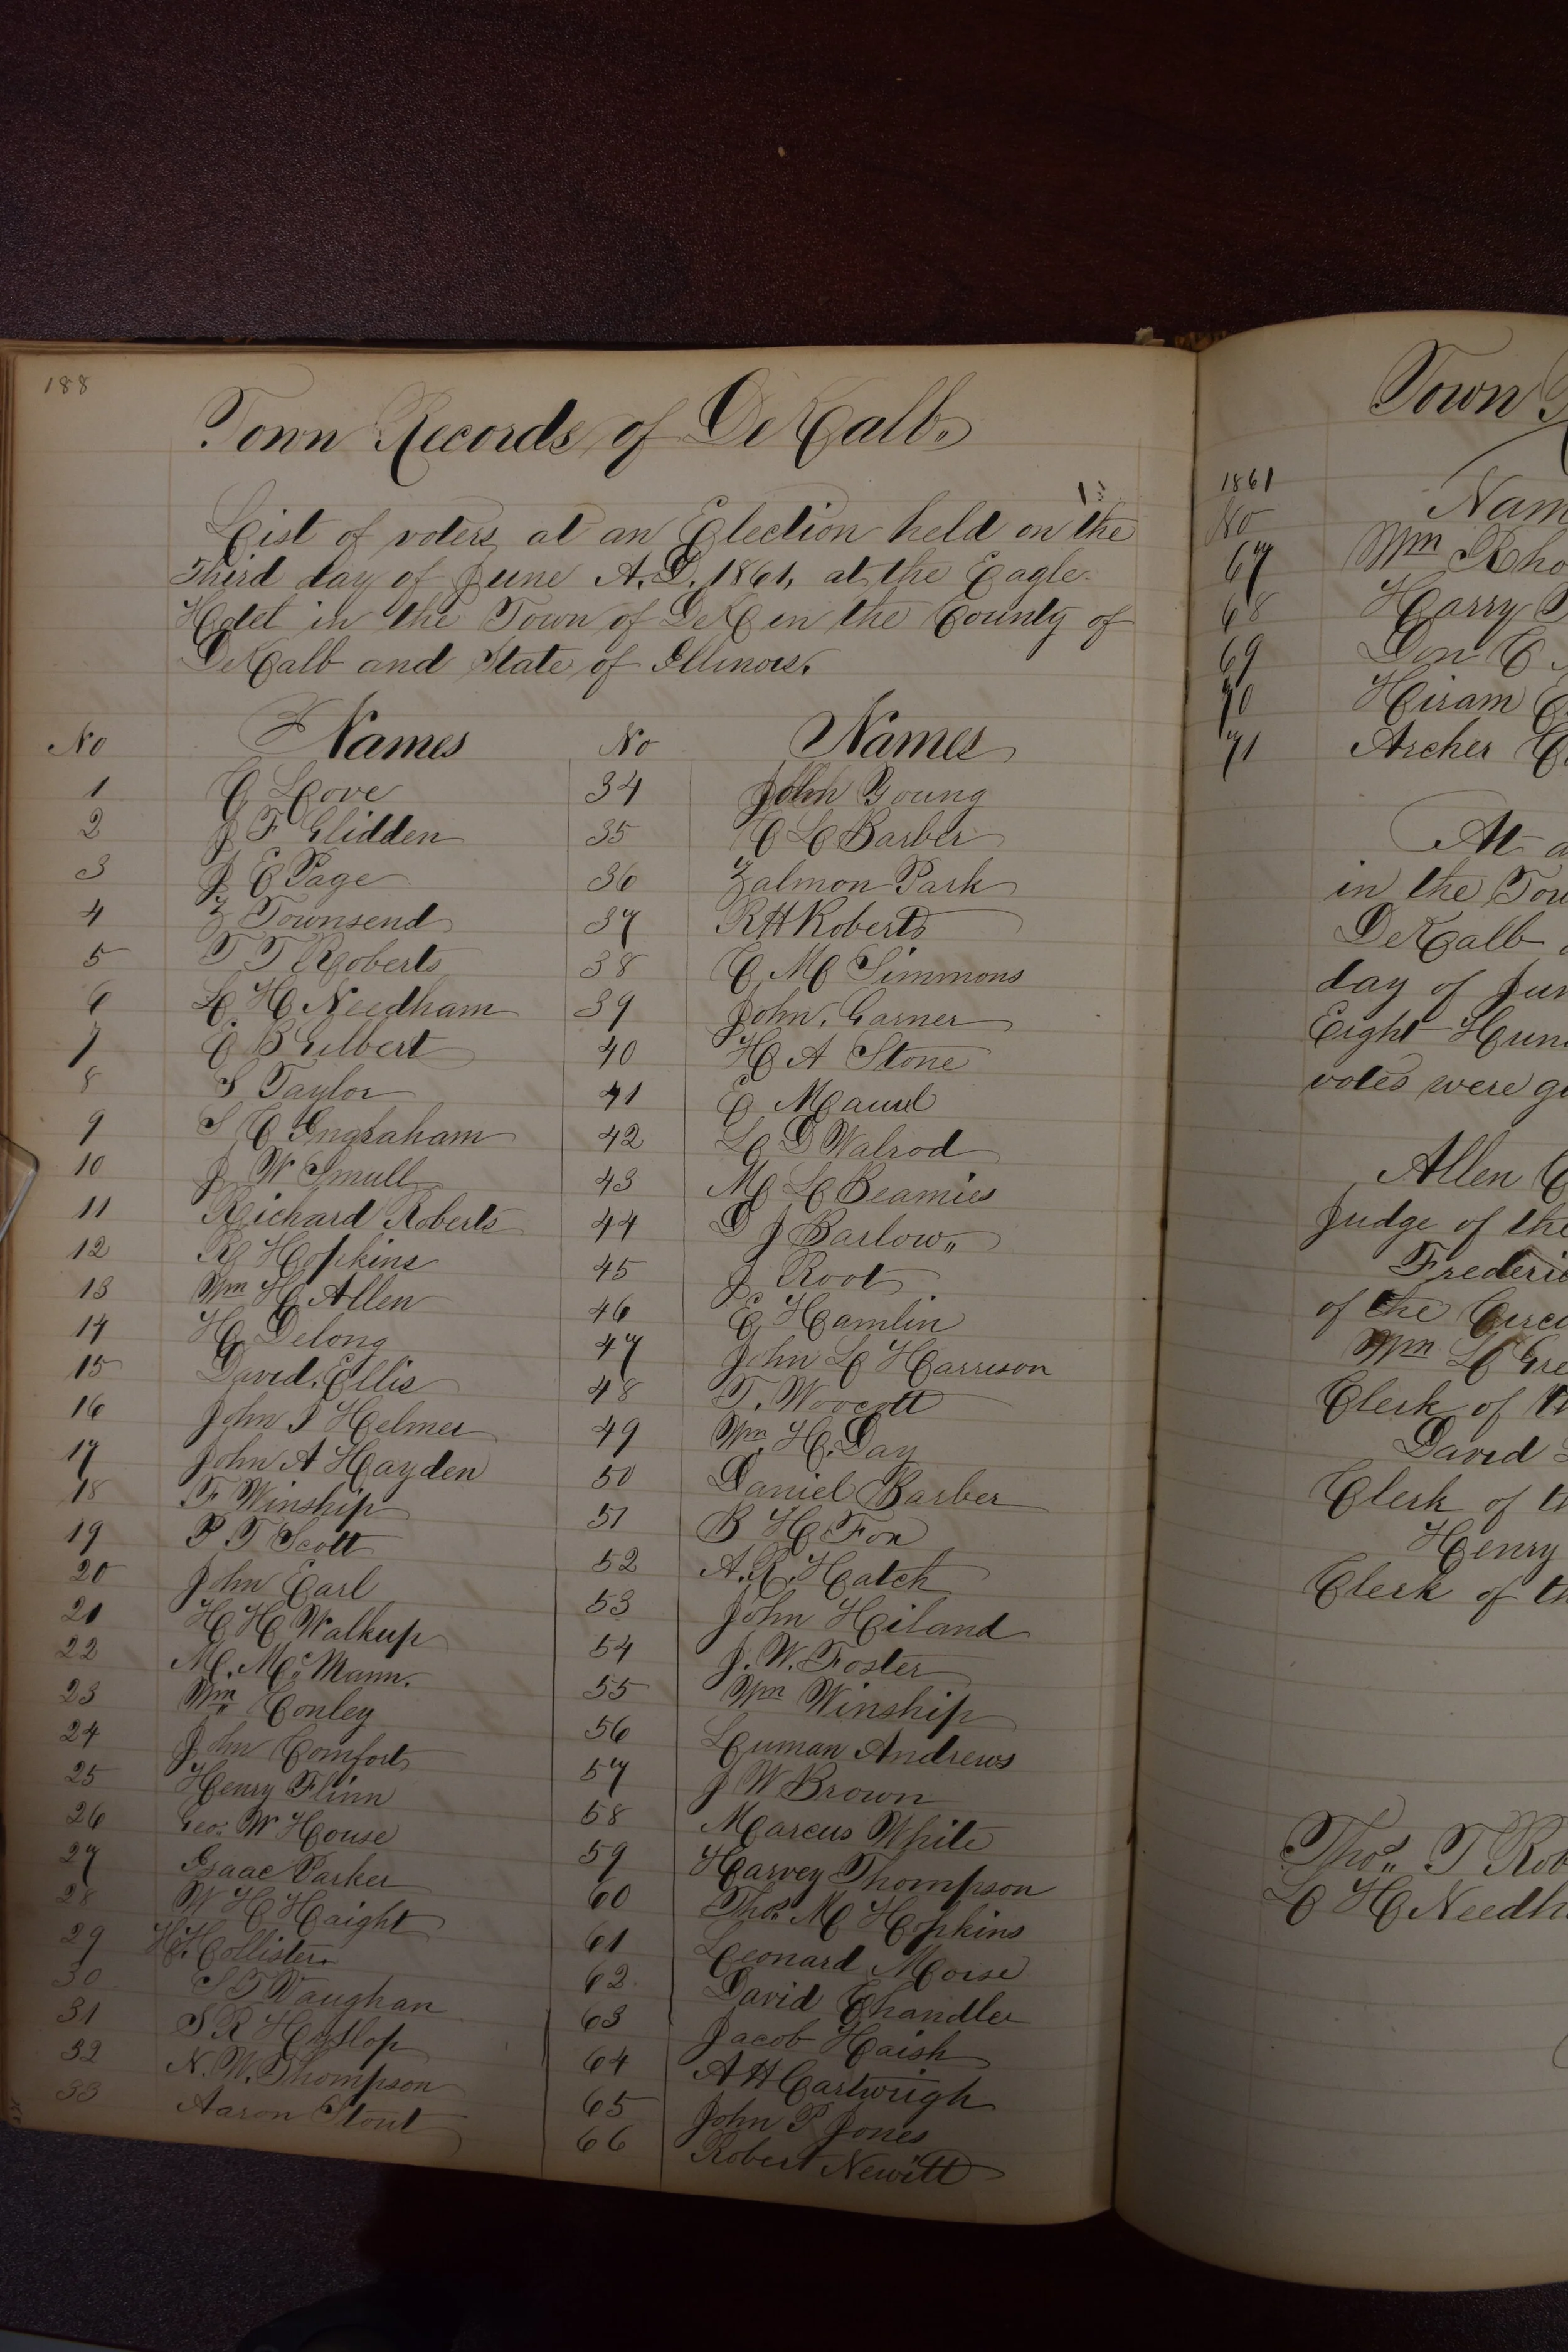 188
Town Records of DeKalb.
List of voters, at an Election held on the
Third day of June A.D. 1861, at the Eagle
Hotel in the Town of DeK in the County of
DeKalb and State of Illinois.
No Names No Names
1 C Love 34 John Young
2 J F Glidden 35 C L Barber
3 J E Page 36 Zalmon Park
4 Z Townsend 37 R H Roberts
5 T T Roberts 38 C M Simmons
6 L H Needham 39 John. Garner
7 C B Gilbert 40 H A Stone
8 S Taylor 41 E
9 S C Ingraham 42 L D Walrod
10 J W Smull 43 M L Beamies
11 Richard Roberts 44 D J Barlow
12 R Hopkins 45 J Root
13 Wm H Allen 46 E Hamlin
14 H Delong 47 John L Harrison
15 David. Ellis 48 T.
16 John I Helmer 49 Wm H. Day
17 John A Hayden 50 Daniel Barber
18 F Winship 51 B H Fox
19 P T Scott 52 A. R. Hatch
20 John Earl 53 John Hiland
21 H H Walkup 54 J. W. Foster
22 M. McMann. 55 Wm Winship
23 Wm Conley 56 Luman Andrews
24 John Comfort 57 J W Brown
25 Henry Flinn 58 Marcus White
26 Geo. W House 59 Harvey Thompson
27 Isaac Parker 60 Thos M Hopkins
28 W H Haight 61 Leonard Morse
29 H. Hollister 62 David Chandler
30 S T Vaughan 63 Jacob Haish
31 S R Hyslop 64 A H Cartwrigh
32 N. W. Thompson 65 John P Jones
33 Aaron Stout 66 Robert Newitt
Town
1861
No Nam
67 Wm Rho
68 Harry
69 Don C
70 Hiram
71 Archer
At a
in the Tow
DeKalb
day of Jun
Eight Hun
votes were gi
Allen C
Judge of the
Frederic
of the Circu
Wm L Gre
Clerk of th
David
Clerk of th
Henry
Clerk of th
Thos. T Rob
L H Needh